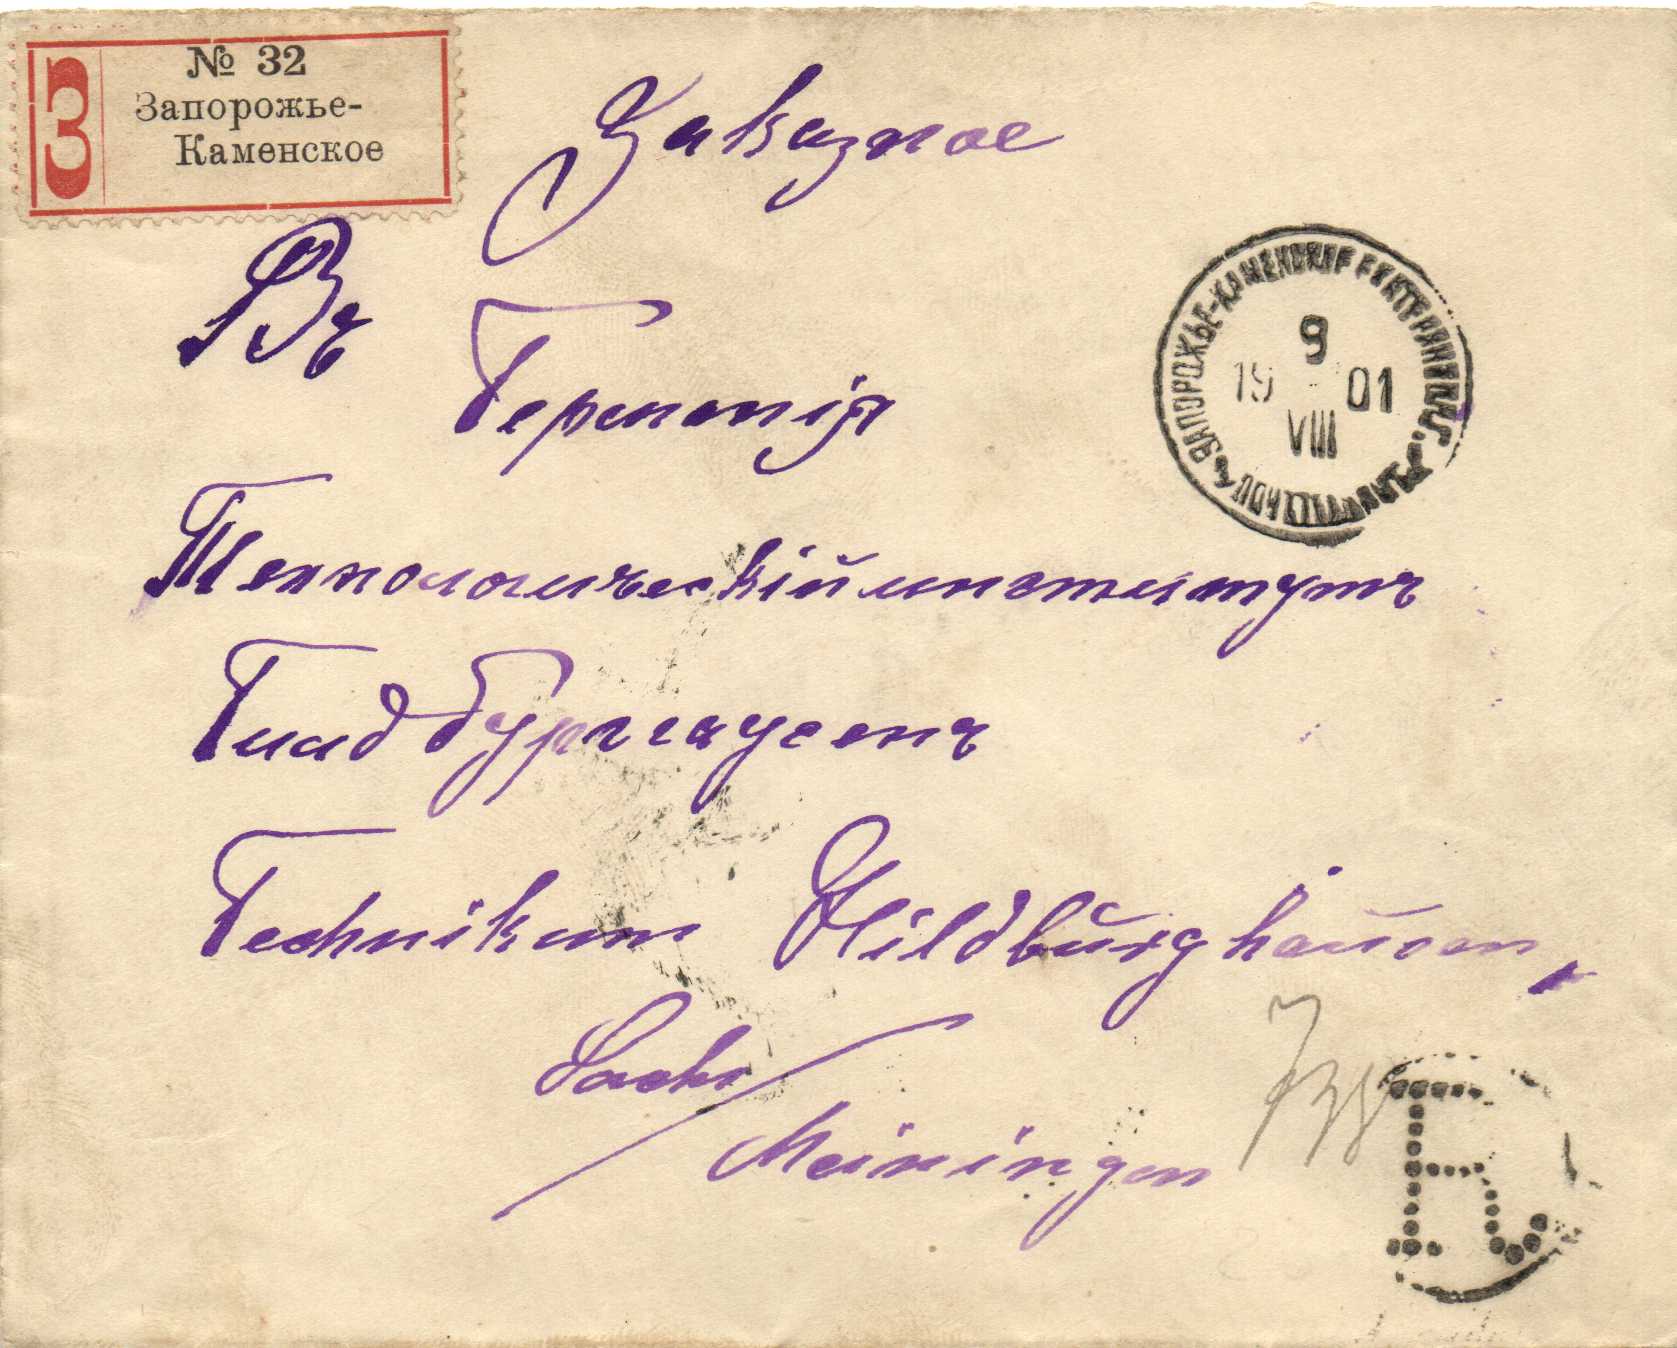 З
№ 32
Запорожье-
Каменское
Заказное
Въ
Германія
ЗАПОРОЖЬЕ-КАМЕНСКОЕ
9
19 01
VIII
Технологическій институтъ
Гильдбурггаузенъ
Technikum Hildbŭrghaŭsen,
Sachs/
Meiningen